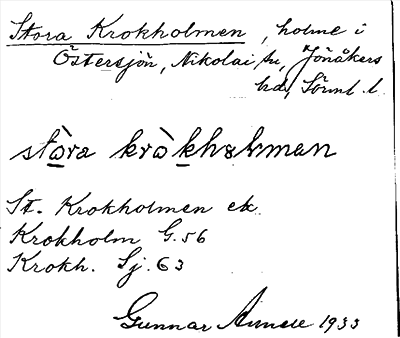 Stora Krokholmen, holme i
Östersjön, Nikolai sn, Jönåkers
hd, Sörml. l.
stòra kròkhɷlman
St. Krokholmen ek.
Krokholm G. 56
Krokh. Sj. 63
Gunnar 1933